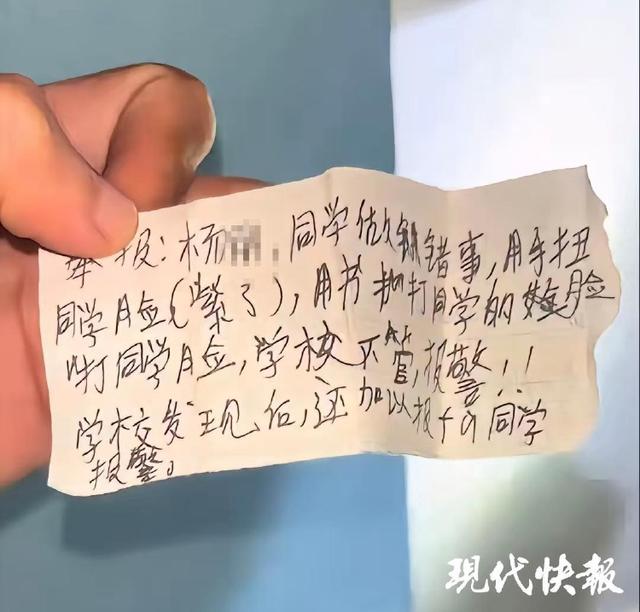 举报：杨 同学做错事，用手扭
同学脸（紫了），用书抽打同学的脸
打同学脸，学校不管，报警！！
学校发现后，还加以报 同学
报警。
现代快报